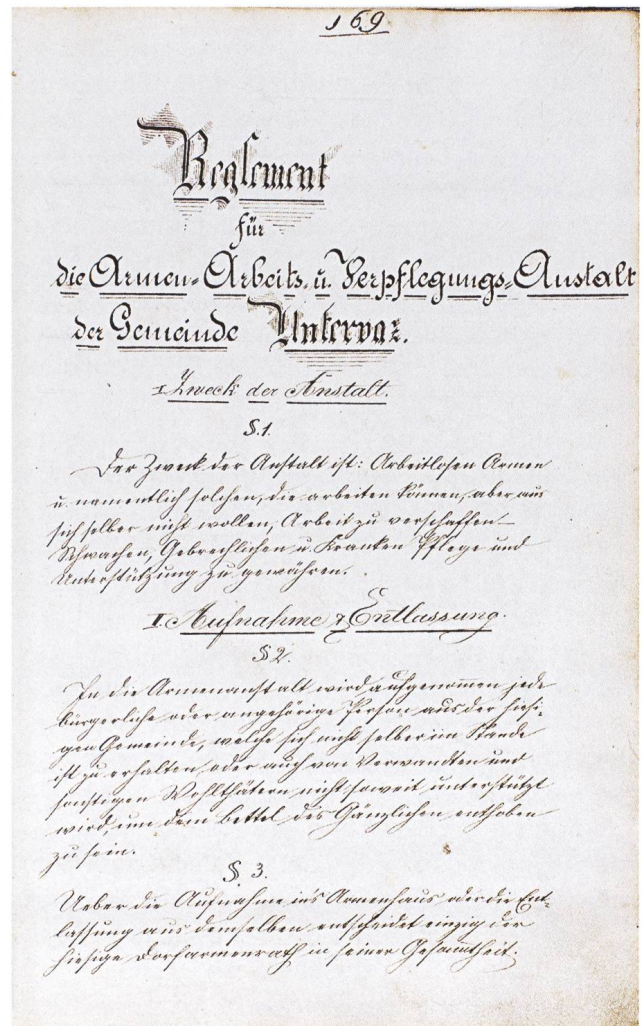 169
Reglement
für
die Armen-Arbeits- u. Verpflegungs-Anstalt
der Gemeinde Untervaz.
I. Zweck der Anstalt.
§. 1.
Der Zweck der Anstalt ist: Arbeitlosen Armen
u. namentlich solchen, die arbeiten können, aber aus
sich selber nicht wollen, Arbeit zu verschaffen –
Schwachen, Gebrechlichen u. Kranken Pflege und
Unterstützung zu gewähren.
II. Aufnahme & Entlassung.
§ 2.
In die Armenanstalt wird aufgenommen jede
bürgerliche oder angehörige Person aus der hiesi-
gen Gemeinde, welche sich nicht selber im Stande
ist zu erhalten, oder auch von Verwandten und
sonstigen Wohlthätern nicht soweit unterstützt
wird, um dem Bettel des Gänzlichen enthoben
zu sein.
§ 3.
Ueber die Aufnahme in's Armenhaus oder die Ent-
lassung aus demselben entscheidet einzig der
hiesige Dorfarmenrath in seiner Gesammtheit.